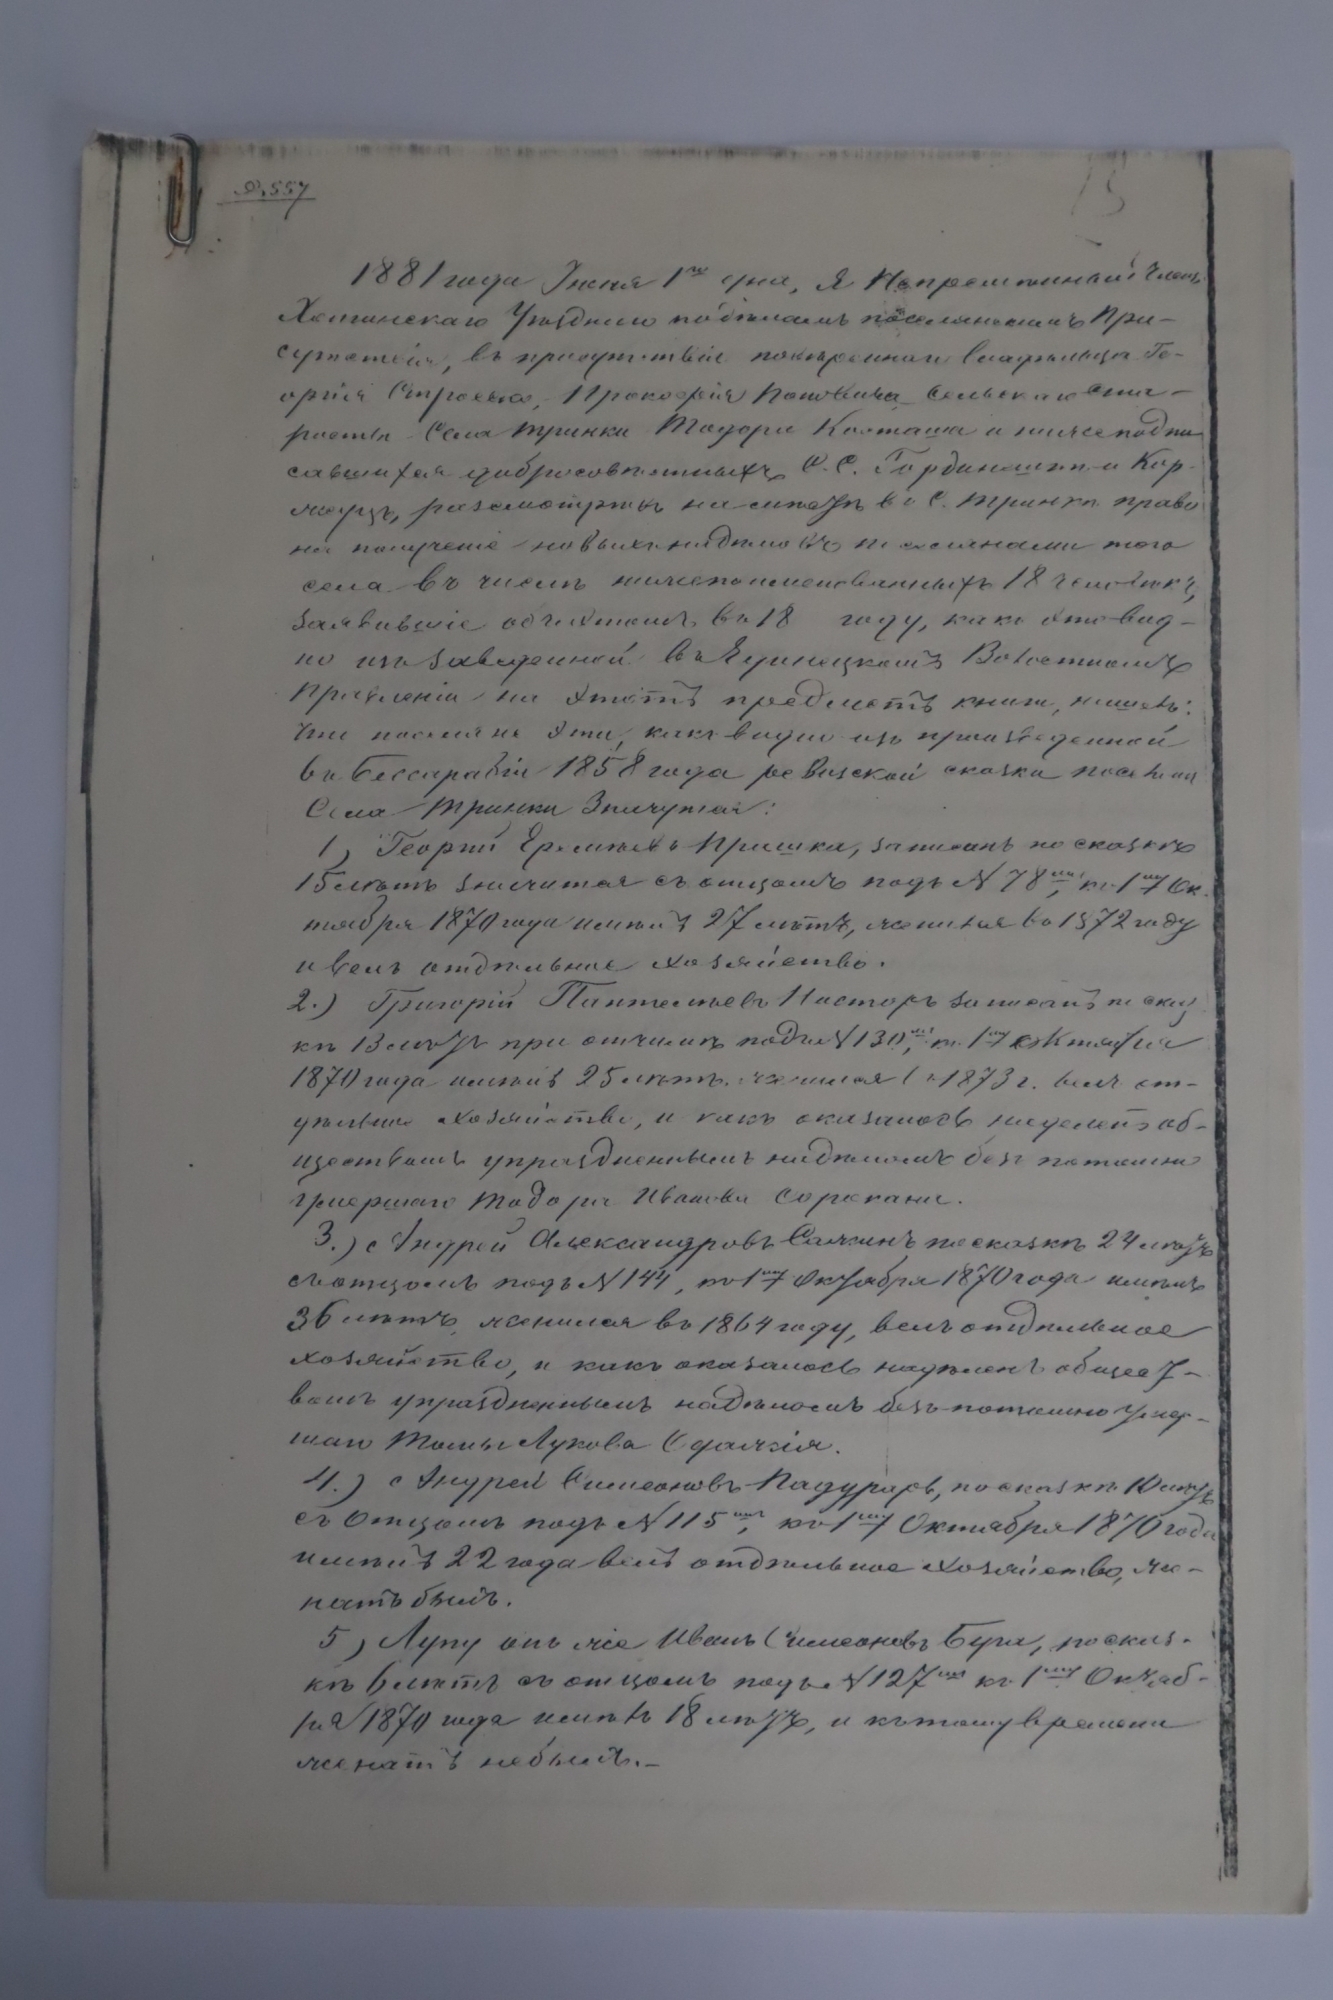 Д. 557
15
1881 года Июня 1го дня, Я Непременный Членъ
Хотинскаго Уезднаго по деламъ поселянскимъ При-
сутствія, въ присутствіи повереннаго владельца Ге-
оргія Строеско, Прокофія Поповича, сельскаго ста-
росты Села Тринки Тодора Колташа и нижеподпи
савшихся добросовестныхъ С. С. Гординештъ и Кор-
моуцъ, разсмотревъ на месте въ С. Тринке право
на полученіе новыхъ наделовъ поселянами того
села въ числе нижепоименованныхъ 18 человекъ,
заявившіе объ этомъ въ 18 году, какъ это вид-
но изъ заведенной въ Единецкомъ Волостномъ
Правленіи на этотъ предметъ книги, нашелъ:
что поселяне эти, какъ видно изъ произведенной
въ Бессарабіи 1858 года ревизской сказки поселянъ
Села Тринки Значутся:
1, Георгий Еремеевъ Пришка, записанъ по сказке
15 летъ значится съ отцомъ подъ N 78мъ, къ 1му Ок-
тября 1870 года имелъ 27 летъ, женился въ 1872 году
и велъ отдельное хозяйство.
2.) Григорій Пантелеевъ Насторъ записанъ по сказ
ке 13 летъ при отчиме подъ N 130мъ, къ 1му Октября
1870 года имелъ 25 летъ. женился въ 1873 г. велъ от-
дельное хозяйство, и какъ оказалось наделенъ об-
ществомъ упраздненнымъ наделомъ безъ потомно
умершаго Тодора Иванова Сорокани.
3.) Андрей Александровъ Салкинъ по сказке 24 летъ
съ отцомъ подъ N 144, къ 1му Октября 1870 года имелъ
36 летъ, женился въ 1864 году, велъ отдельное
хозяйство, и какъ оказалось наделенъ общест-
вомъ упраздненнымъ наделомъ безъ потомно умер-
шаго Томы Лукова Одажія.
4.) Андрей Симеоновъ Падураръ, по сказке 10 летъ
съ Отцомъ подъ N 115мъ, къ 1му Октября 1870 года
имелъ 22 года велъ отдельное хозяйство, же-
натъ былъ.
5, Лупу онъ же Иванъ Симеоновъ Буга, по сказ-
ке 6 летъ съ отцомъ подъ N 127мъ къ 1му Октяб-
ря 1870 года имелъ 18 летъ, и къ тому времени
женатъ небылъ.-